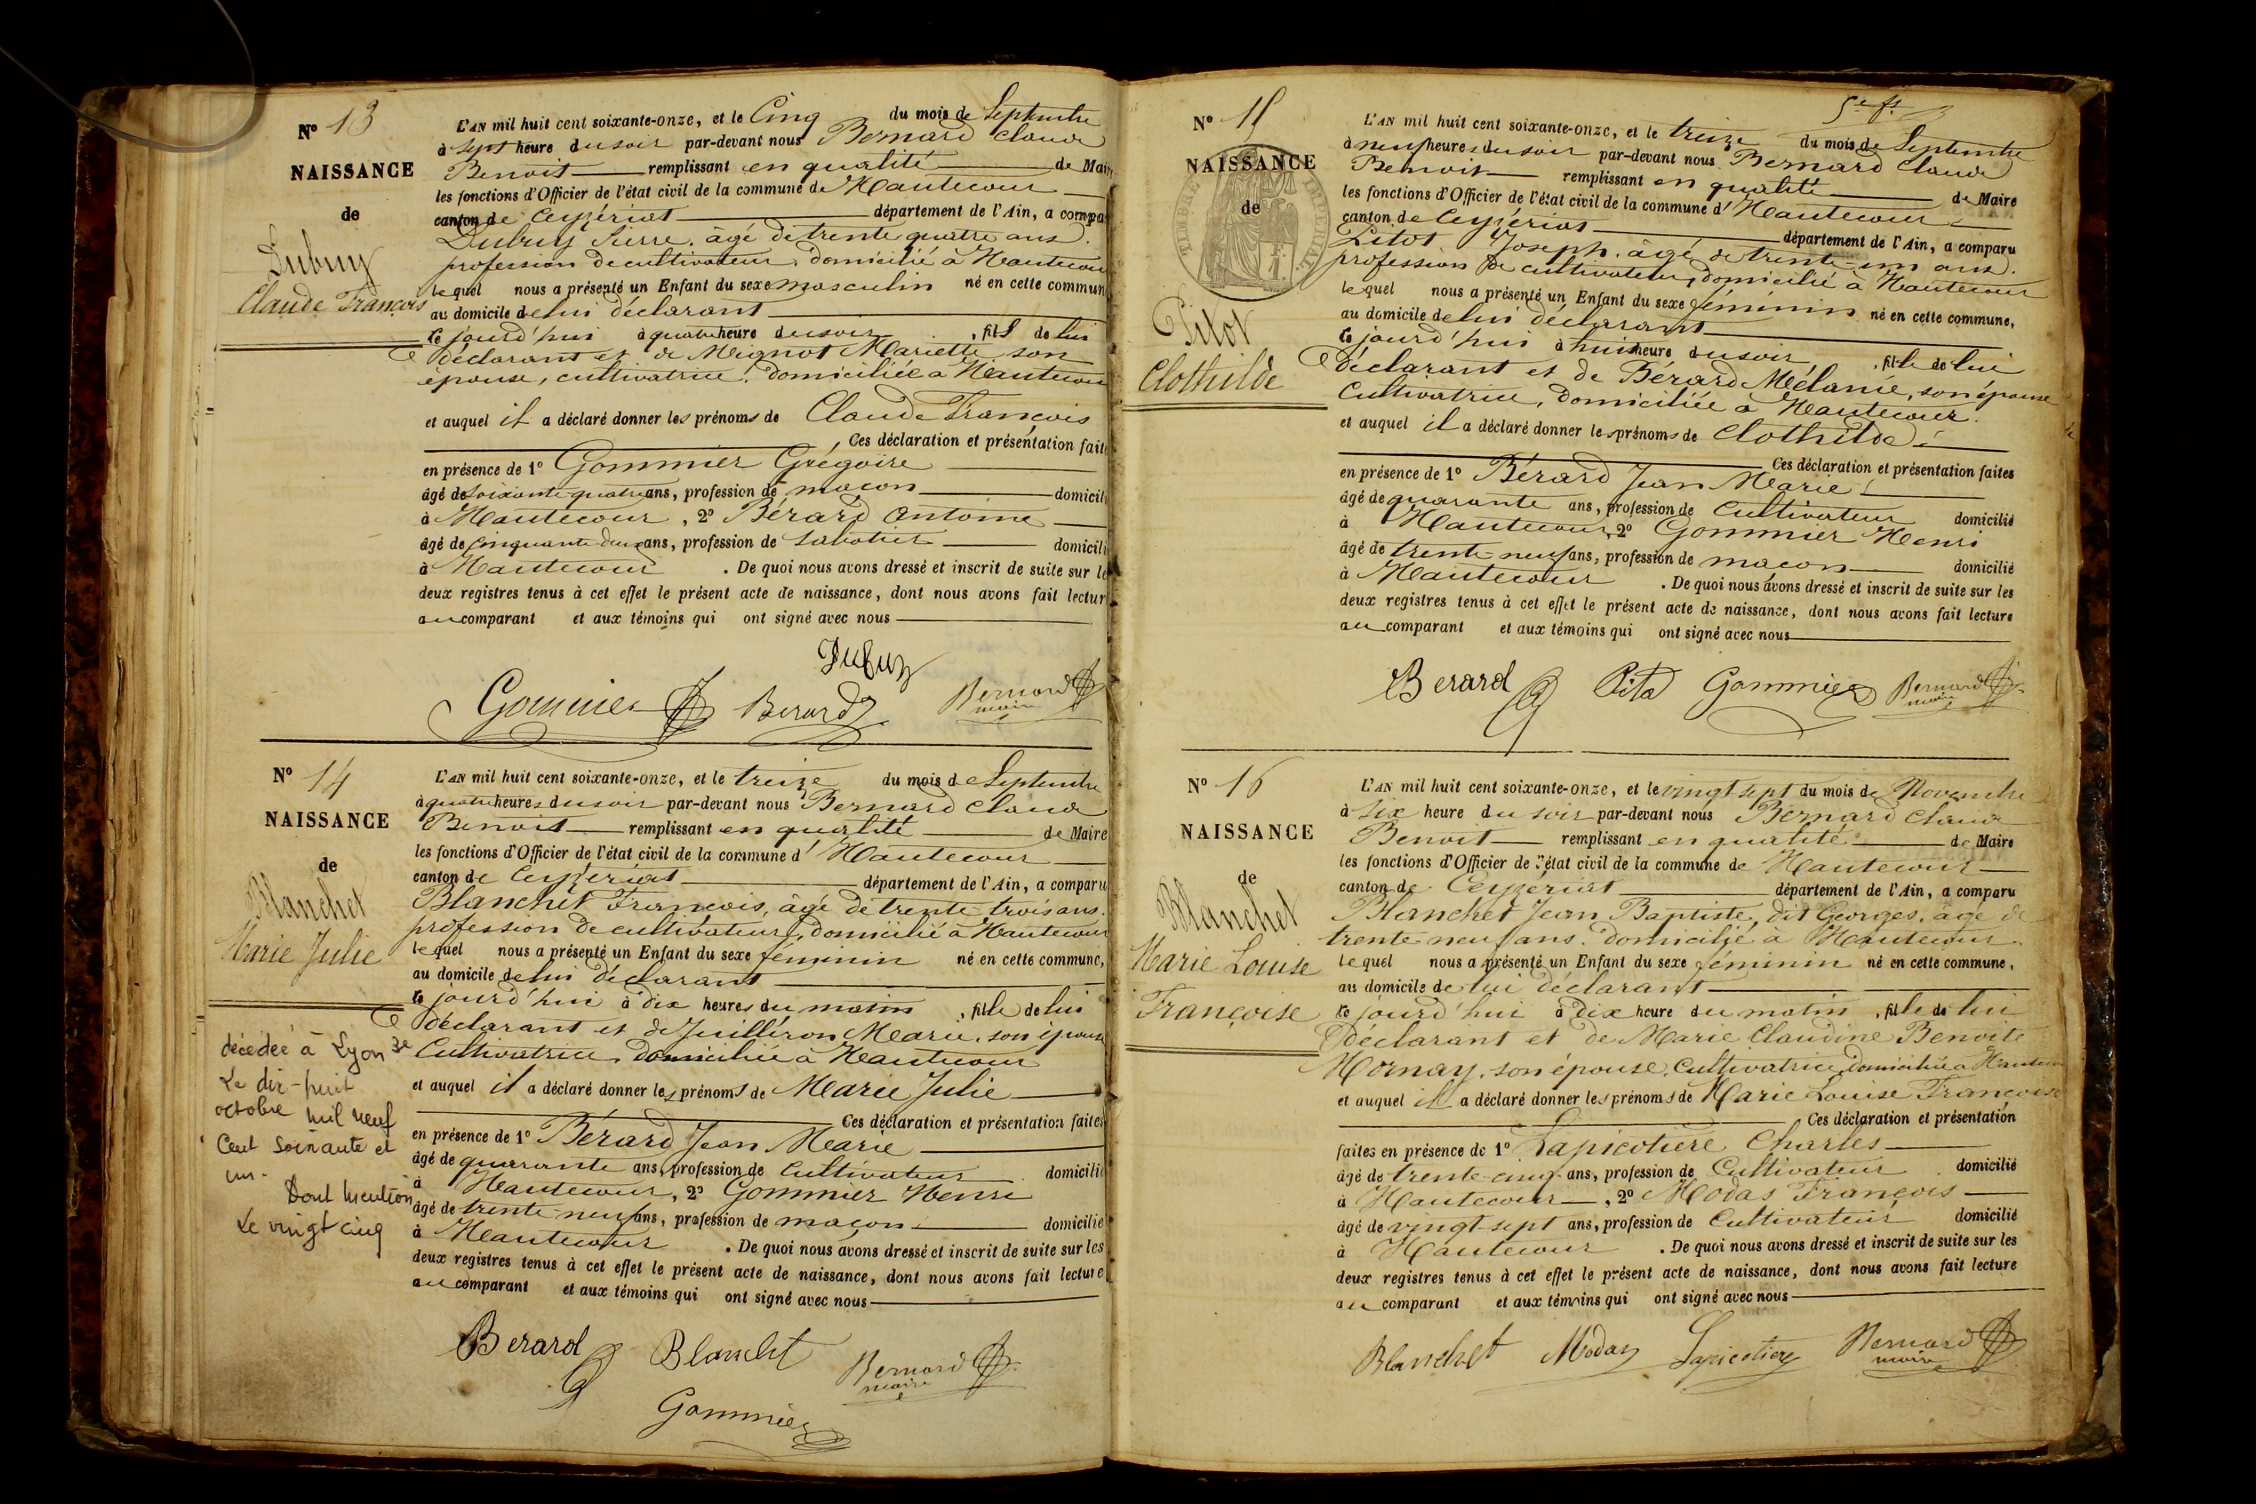 N° 13
NAISSANCE
de
Dubuy
Claude François
L'AN mil huit cent soixante-onze, et le Cinq du mois de Septembre
à sept heure du soir par-devant nous Bernard Claude
Benoit remplissant en qualité de Maire
les fonctions d'Officier de l'état civil de la commune de Hautecour
canton de Ceyzériat département de l'Ain, a compa
Dubuy Pierre, âgé de trente quatre ans,
profession de cultivateur, domicilié à Hautecour
lequel nous a présenté un Enfant du sexe masculin né en cette commun
au domicile de lui déclarant
ce jourd'hui à quatre heure du soir, fils de lui
déclarant et de Mignot Mariette, son
épouse, cultivatrice, domiciliée à Hautecour
et auquel il a déclaré donner les prénoms de Claude François
Ces déclaration et présentation faite
en présence de 1° Gommier Grégoire
âgé de soixante quatre ans, profession de maçon domicili
à Hautecour, 2° Bérard Antoine
âgé de cinquante deux ans, profession de sabotier domicili
à Hautecour. De quoi nous avons dressé et inscrit de suite sur le
deux registres tenus à cet effet le présent acte de naissance, dont nous avons fait lectur
au comparant et aux témoins qui ont signé avec nous
Dubuy
Gommier Berard Bernard
maire
N° 14
NAISSANCE
de
Blanchet
Marie Julie
L'AN mil huit cent soixante-onze, et le treize du mois de Septembre
à quatre heures du soir par-devant nous Bernard Claude
Benoit remplissant en qualité de Maire
les fonctions d'Officier de l'état civil de la commune d' Hautecour
canton de Ceyzériat département de l'Ain, a comparu
Blanchet François, âgé de trente trois ans,
profession de cultivateur, domicilié à Hautecour
lequel nous a présenté un Enfant du sexe féminin né en cette commune,
au domicile de lui déclarant
ce jourd'hui à dix heures du matin, fille de lui
déclarant et de Juilléron Marie, son épouse
Cultivatrice, domiciliée à Hautecour
et auquel il a déclaré donner les prénoms de Marie Julie
Ces déclaration et présentation faites
en présence de 1° Bérard Jean Marie
âgé de quarante ans, profession de Cultivateur domicilié
à Hautecour, 2° Gommier Henri
âgé de trente-neuf ans, profession de maçon domicilié
à Hautecour. De quoi nous avons dressé et inscrit de suite sur les
deux registres tenus à cet effet le présent acte de naissance, dont nous avons fait lecture
au comparant et aux témoins qui ont signé avec nous
décédée à Lyon 3e
Le dix-huit
octobre mil neuf
Cent soixante et
un.
Dont mention
Le vingt cinq
Berard Blanchet Bernard
maire
Gommier
5e ft
N° 15
NAISSANCE
de
TIMBRE IMPERIAL
Pitot
Clothilde
L'AN mil huit cent soixante-onze, et le treize du mois de Septembre
à neuf heures du soir par-devant nous Bernard Claude
Benoit remplissant en qualité de Maire
les fonctions d'Officier de l'état civil de la commune d' Hautecour
canton de Ceyzériat département de l'Ain, a comparu
Pitot Joseph, âgé de trente-un ans,
profession de cultivateur, domicilié à Hautecour
lequel nous a présenté un Enfant du sexe féminin né en cette commune,
au domicile de lui déclarant
ce jourd'hui à huit heure du soir, fille de lui
déclarant et de Bérard Mélanie, son épouse
Cultivatrice, domiciliée à Hautecour.
et auquel il a déclaré donner les prénoms de Clothilde
Ces déclaration et présentation faites
en présence de 1° Bérard Jean Marie
âgé de quarante ans, profession de Cultivateur domicilié
à Hautecour, 2° Gommier Henri
âgé de trente-neuf ans, profession de maçon domicilié
à Hautecour. De quoi nous avons dressé et inscrit de suite sur les
deux registres tenus à cet effet le présent acte de naissance, dont nous avons fait lecture
au comparant et aux témoins qui ont signé avec nous
Berard Pitot Gommier Bernard
maire
N° 16
NAISSANCE
de
Blanchet
Marie Louise
Françoise
L'AN mil huit cent soixante-onze, et le vingt-sept du mois de Novembre
à six heure du soir par-devant nous Bernard Claude
Benoit remplissant en qualité de Maire
les fonctions d'Officier de l'état civil de la commune de Hautecour
canton de Ceyzériat département de l'Ain, a comparu
Blanchet Jean Baptiste, dit Georges, âgé de
trente-neuf ans, domicilié à Hautecour
lequel nous a présenté un Enfant du sexe féminin né en cette commune,
au domicile de lui déclarant
ce jourd'hui à dix heure du matin, fille de lui
déclarant et de Marie Claudine Benoite
Mornay, son épouse, Cultivatrice, domiciliée à Hautecour
et auquel il a déclaré donner les prénoms de Marie Louise Françoise
Ces déclaration et présentation
faites en présence de 1° Lapicotiere Charles
âgé de trente-cinq ans, profession de Cultivateur domicilié
à Hautecour, 2° Modas François
âgé de vingt-sept ans, profession de Cultivateur domicilié
à Hautecour. De quoi nous avons dressé et inscrit de suite sur les
deux registres tenus à cet effet le présent acte de naissance, dont nous avons fait lecture
au comparant et aux témoins qui ont signé avec nous
Blanchet Modas Lapicotiere Bernard
maire